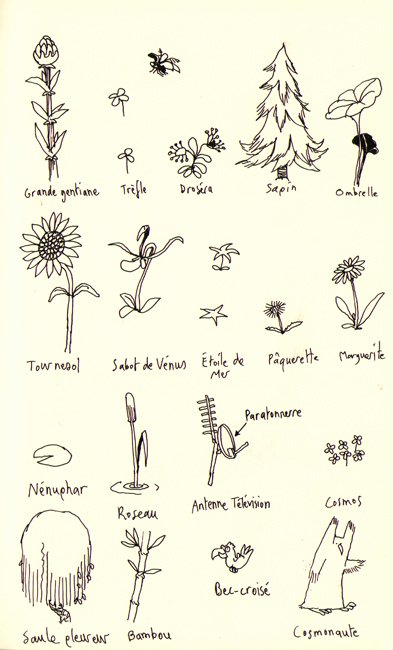 Grande gentiane
Trèfle
Droséra
Sapin
Ombrelle
Tournesol
Sabot de Vénus
Étoile de
Mer
Pâquerette
Marguerite
Paratonnerre
Nénuphar
Roseau
Antenne Télévision
Cosmos
Saule pleureur
Bambou
Bec-croisé
Cosmonaute